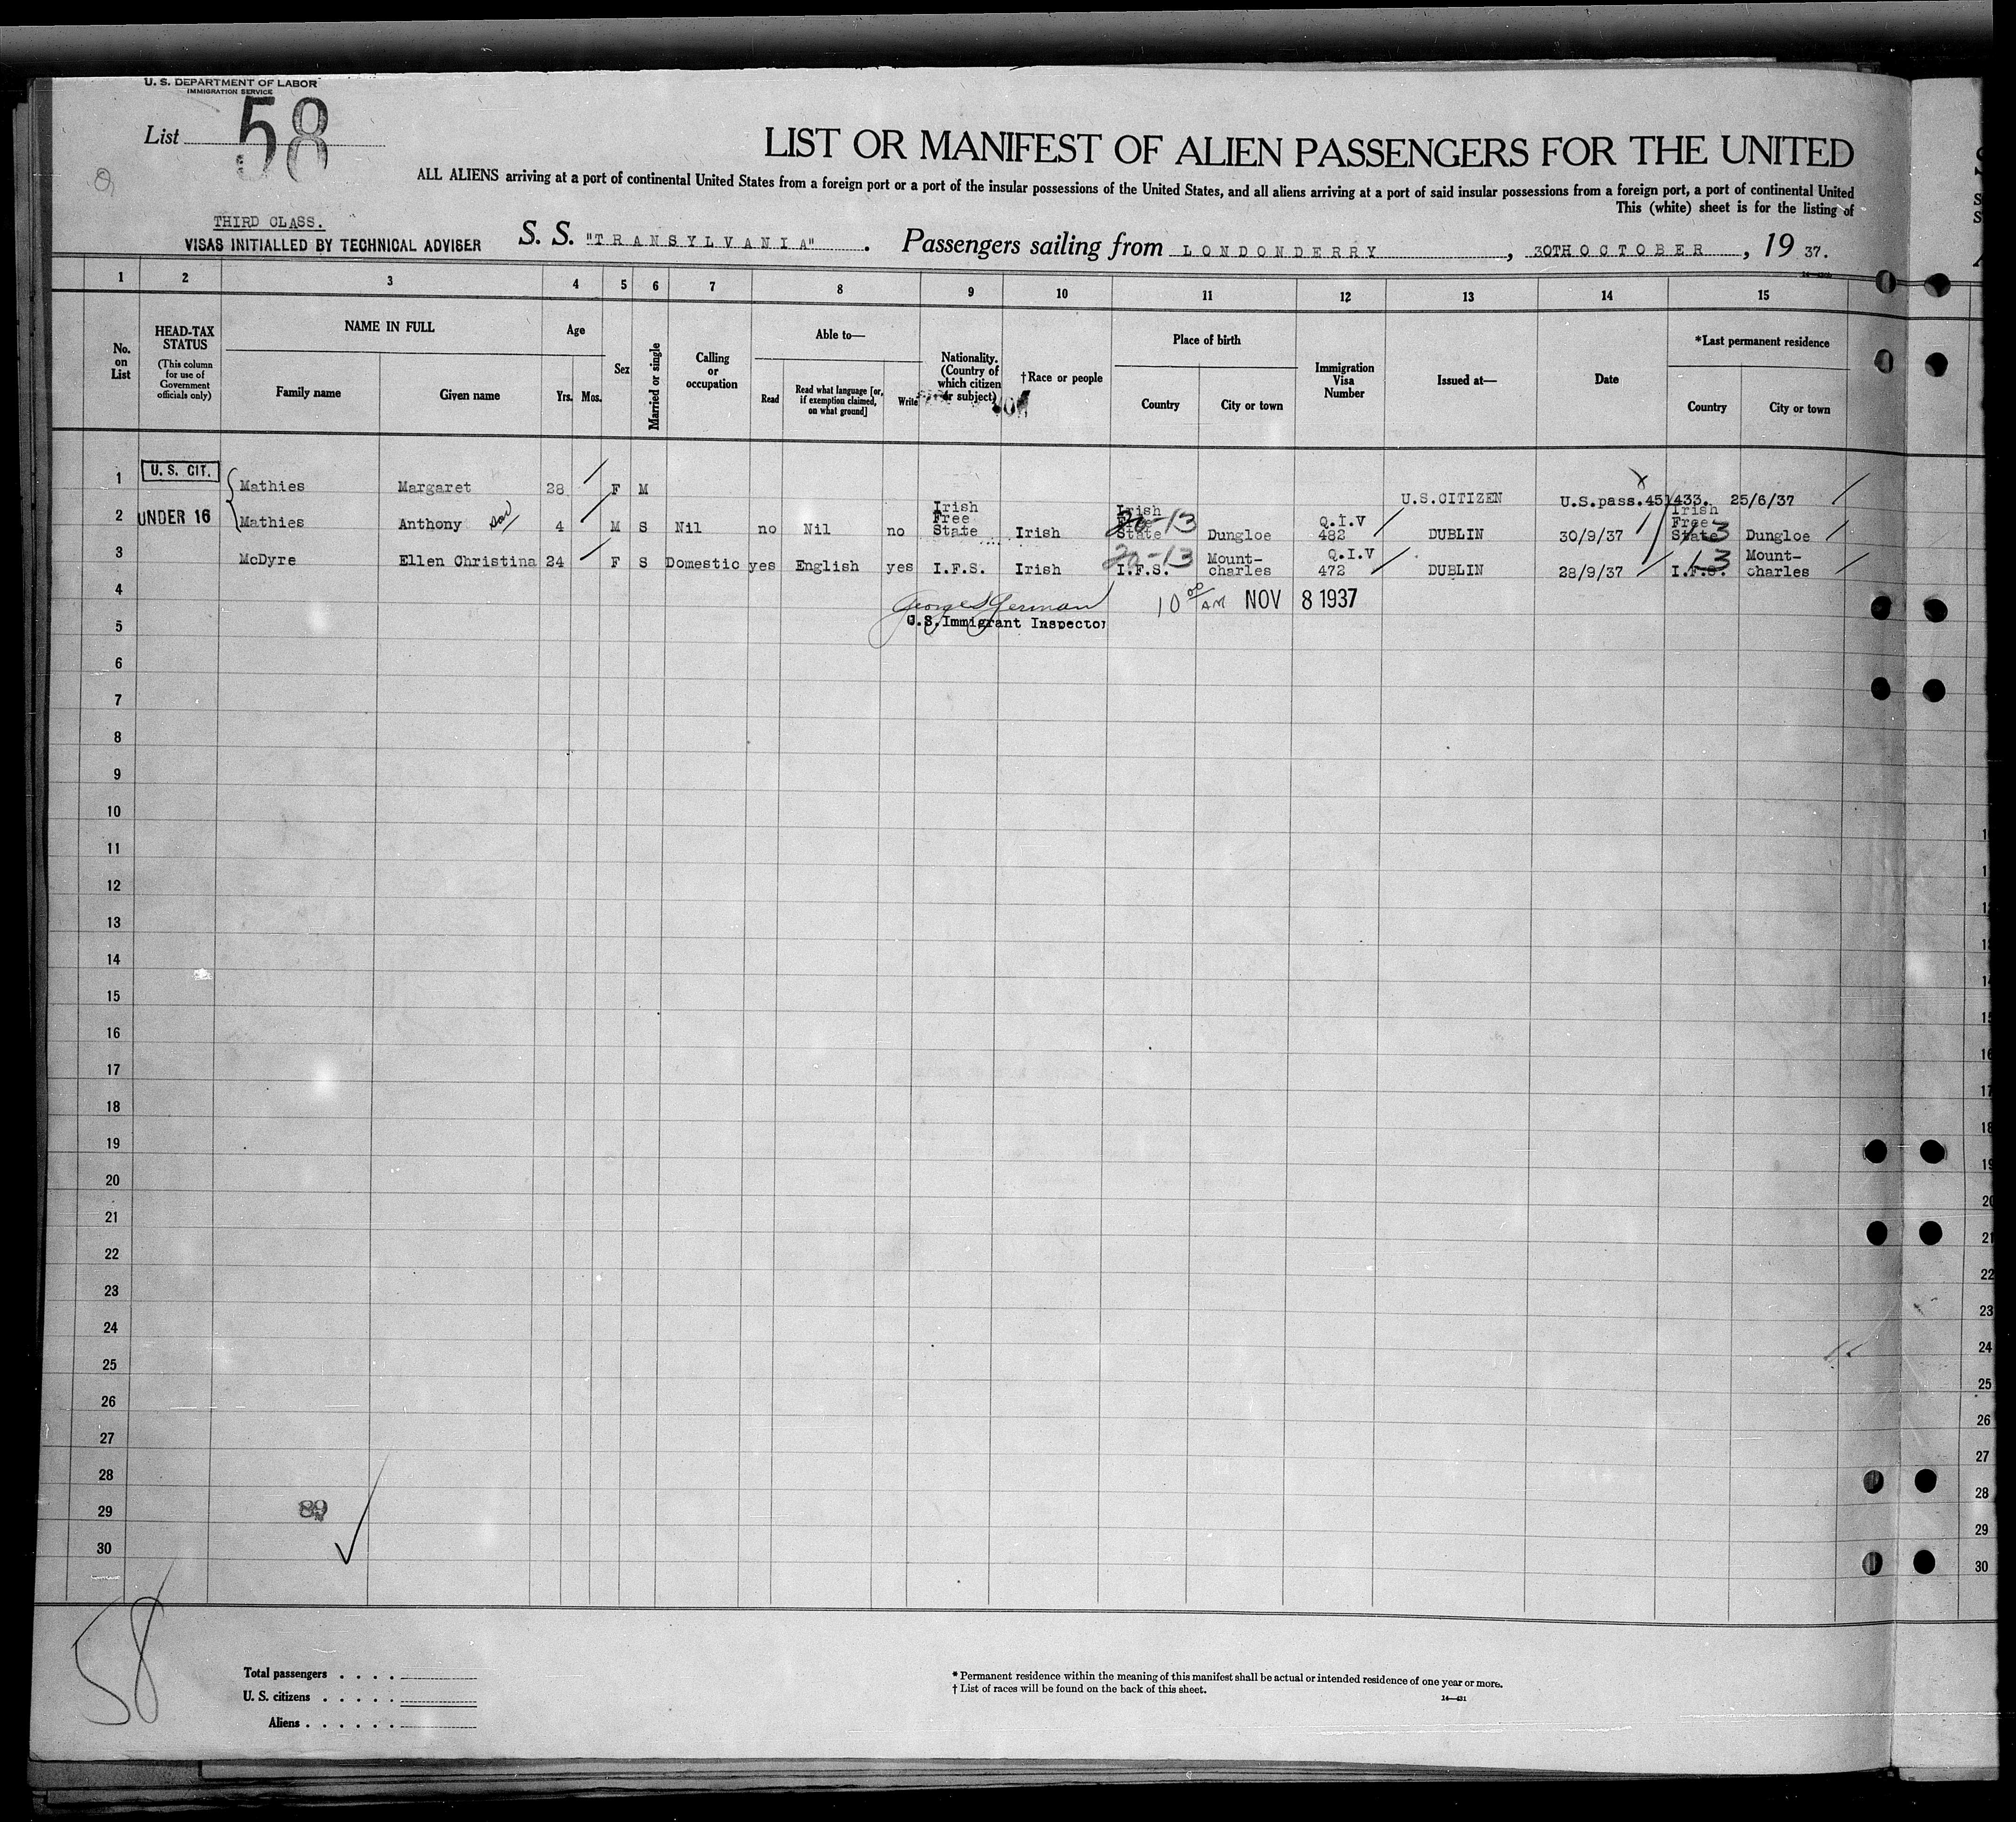 U. S. DEPARTMENT OF LABOR
IMMIGRATION SERVICE
List 58
LIST OR MANIFEST OF ALIEN PASSENGERS FOR THE UNITED
ALL ALIENS arriving at a port of continental United States from a foreign port or a port of the insular possessions of the United States, and all aliens arriving at a port of said insular possessions from a foreign port, a port of continental United
This (white) sheet is for the listing of
THIRD CLASS.
VISAS INITIALLED BY TECHNICAL ADVISER
S. S. "TRANSYLVANIA". Passengers sailing from LONDONDERRY, 30TH OCTOBER, 19 37.
1 2 3 4 5 6 7 8 9 10 11 12 13 14 15
No. on List
HEAD-TAX STATUS
(This column for use of Government officials only)
NAME IN FULL
Family name
Given name
Age
Yrs. Mos.
Sex
Married or single
Calling or occupation
Able to—
Read
Read what language [or, if exemption claimed, on what ground]
Write
Nationality. (Country of which citizen or subject)
†Race or people
Place of birth
Country
City or town
Immigration Visa Number
Issued at—
Date
*Last permanent residence
Country
City or town
1 U. S. CIT. Mathies Margaret 28 F M U.S.CITIZEN U.S.pass.451433. 25/6/37
2 UNDER 16 Mathies Anthony 4 M S Nil no Nil no Irish Free State Irish Irish Free State 20-13 Dungloe Q.I.V 482 DUBLIN 30/9/37 Irish Free State 13 Dungloe
3 McDyre Ellen Christina 24 F S Domestic yes English yes I.F.S. Irish I.F.S. 20-13 Mount-charles Q.I.V 472 DUBLIN 28/9/37 I.F.S. 13 Mount-charles
4 10 00 AM NOV 8 1937
5 U.S. Immigrant Inspector
6
7
8
9
10
11
12
13
14
15
16
17
18
19
20
21
22
23
24
25
26
27
28
29 89
30
58
Total passengers . . . .
U. S. citizens . . . . .
Aliens . . . . . .
* Permanent residence within the meaning of this manifest shall be actual or intended residence of one year or more.
† List of races will be found on the back of this sheet.
14—431